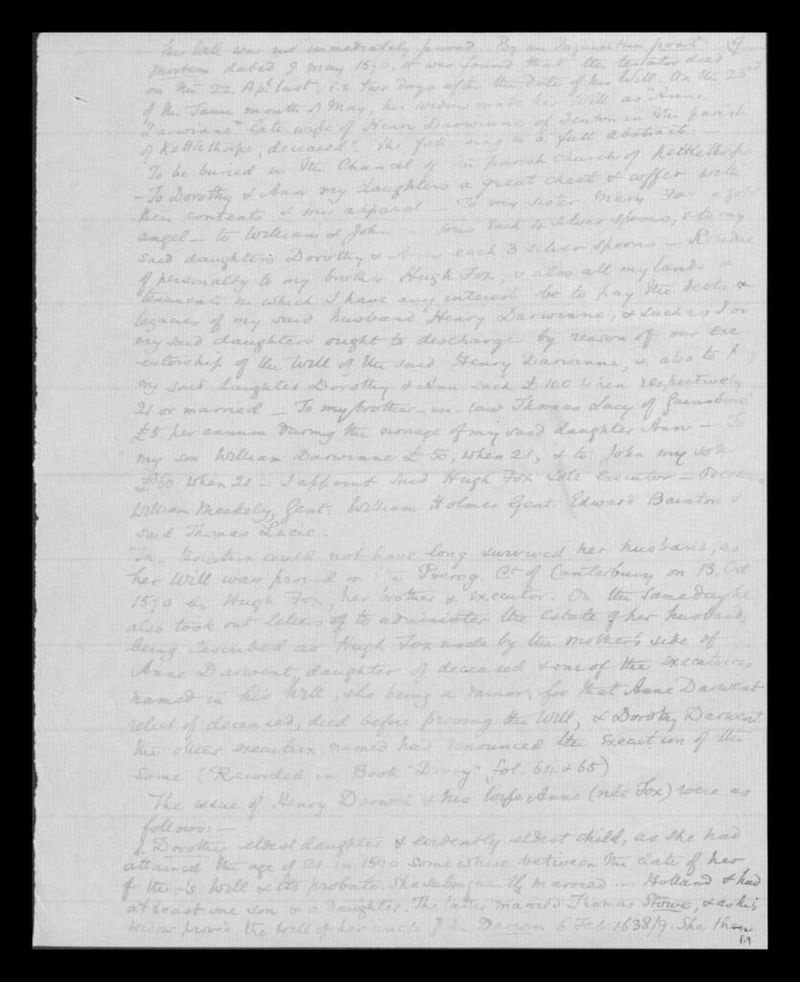 This Will was not immediately proved. By an Inquisition post 9
mortem dated 9 May 1590, it was found that the testator died
on the 22 Apl last, i.e. two days after the date of his Will. On the 23rd
of the same month of May, his widow made her Will as "Anne
Darwinne" late wife of Henry Darwinne of Fenton in the parish
of Kettlethorpe, deceased". The following is a full abstract: —
To be buried in the Chancel of the parish church of Kettlethorpe
— To Dorothy & Ann my daughters a great chest & coffer with
their contents & my apparel — To my sister Mary Fox a gold
angel — to William & John sons each 4 silver spoons, & to my
said daughters Dorothy & Ann each 3 silver spoons — Residue
of personalty to my brother Hugh Fox, & also all my lands &
tenements in which I have any interest be to pay the debts &
legacies of my said husband Henry Darwinne, & such as I or
my said daughters ought to discharge by reason of our exe-
-cutorship of the Will of the said Henry Darwinne, & also to
my said daughters Dorothy & Ann each £100 when respectively
21 or married — To my brother-in-law Thomas Lacy of Gainsboro'
£5 per annum during the nonage of my said daughter Anne — To
my son William Darwinne £50, when 21, & to John my son
£50 when 21 — I appoint said Hugh Fox sole executor —
William Meekely, Gent: William Holmes Gent. Edward Bainton &
said Thomas Lacie.
Testatrix could not have long survived her husband, as
her Will was proved in the Prerog. Ct of Canterbury on 13 Oct
1590 by Hugh Fox, her brother & executor. On the same day he
also took out letters to administer the estate of her husband,
being described as Hugh Fox uncle by the mother's side of
Anne Darwent, daughter of deceased & one of the executrices
named in his Will, she being a minor, for that Anne Darwent
relict of deceased, died before proving the Will, & Dorothy Darwent
the other executrix named had renounced the Execution of the
same (Recorded in Book "Drury" fol. 64 & 65)
The issue of Henry Darwin & his wife Anne (née Fox) were as
follows: —
1. Dorothy eldest daughter & evidently eldest child, as she had
attained the age of 21 in 1590 somewhere between the date of her
father's Will & its probate. She subsequently married .... Holland & had
at least one son & a daughter. The latter married Thomas Stowe, & as his
widow proved the Will of her uncle John Darwin 6 Feb 1638/9. She then